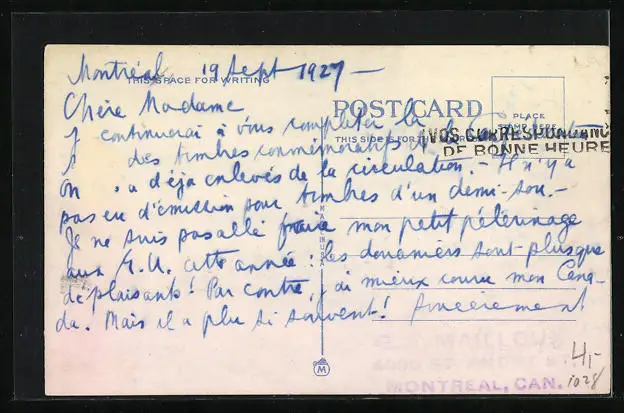 Montréal, 19 Sept 1927 —
THIS SPACE FOR WRITING
Chère Madame
POST CARD
PLACE
Je continuerai à vous compléter la
THIS SIDE IS FOR THE
VOS CORRESPONDANC
DE BONNE HEURE
des timbres commémoratifs
On a déjà enlevés de la circulation. — Il n'y a
pas eu d'émission pour timbres d'un demi-sou. —
Je ne suis pas allé faire mon petit pélerinage
aux E.U. cette année : les douaniers sont plus que
déplaisants! Par contre, j'ai mieux connu mon Cana-
da. Mais il a plu si souvent! Sincèrement
MAILLOUX
MONTREAL, CAN.
M
4,-
1028